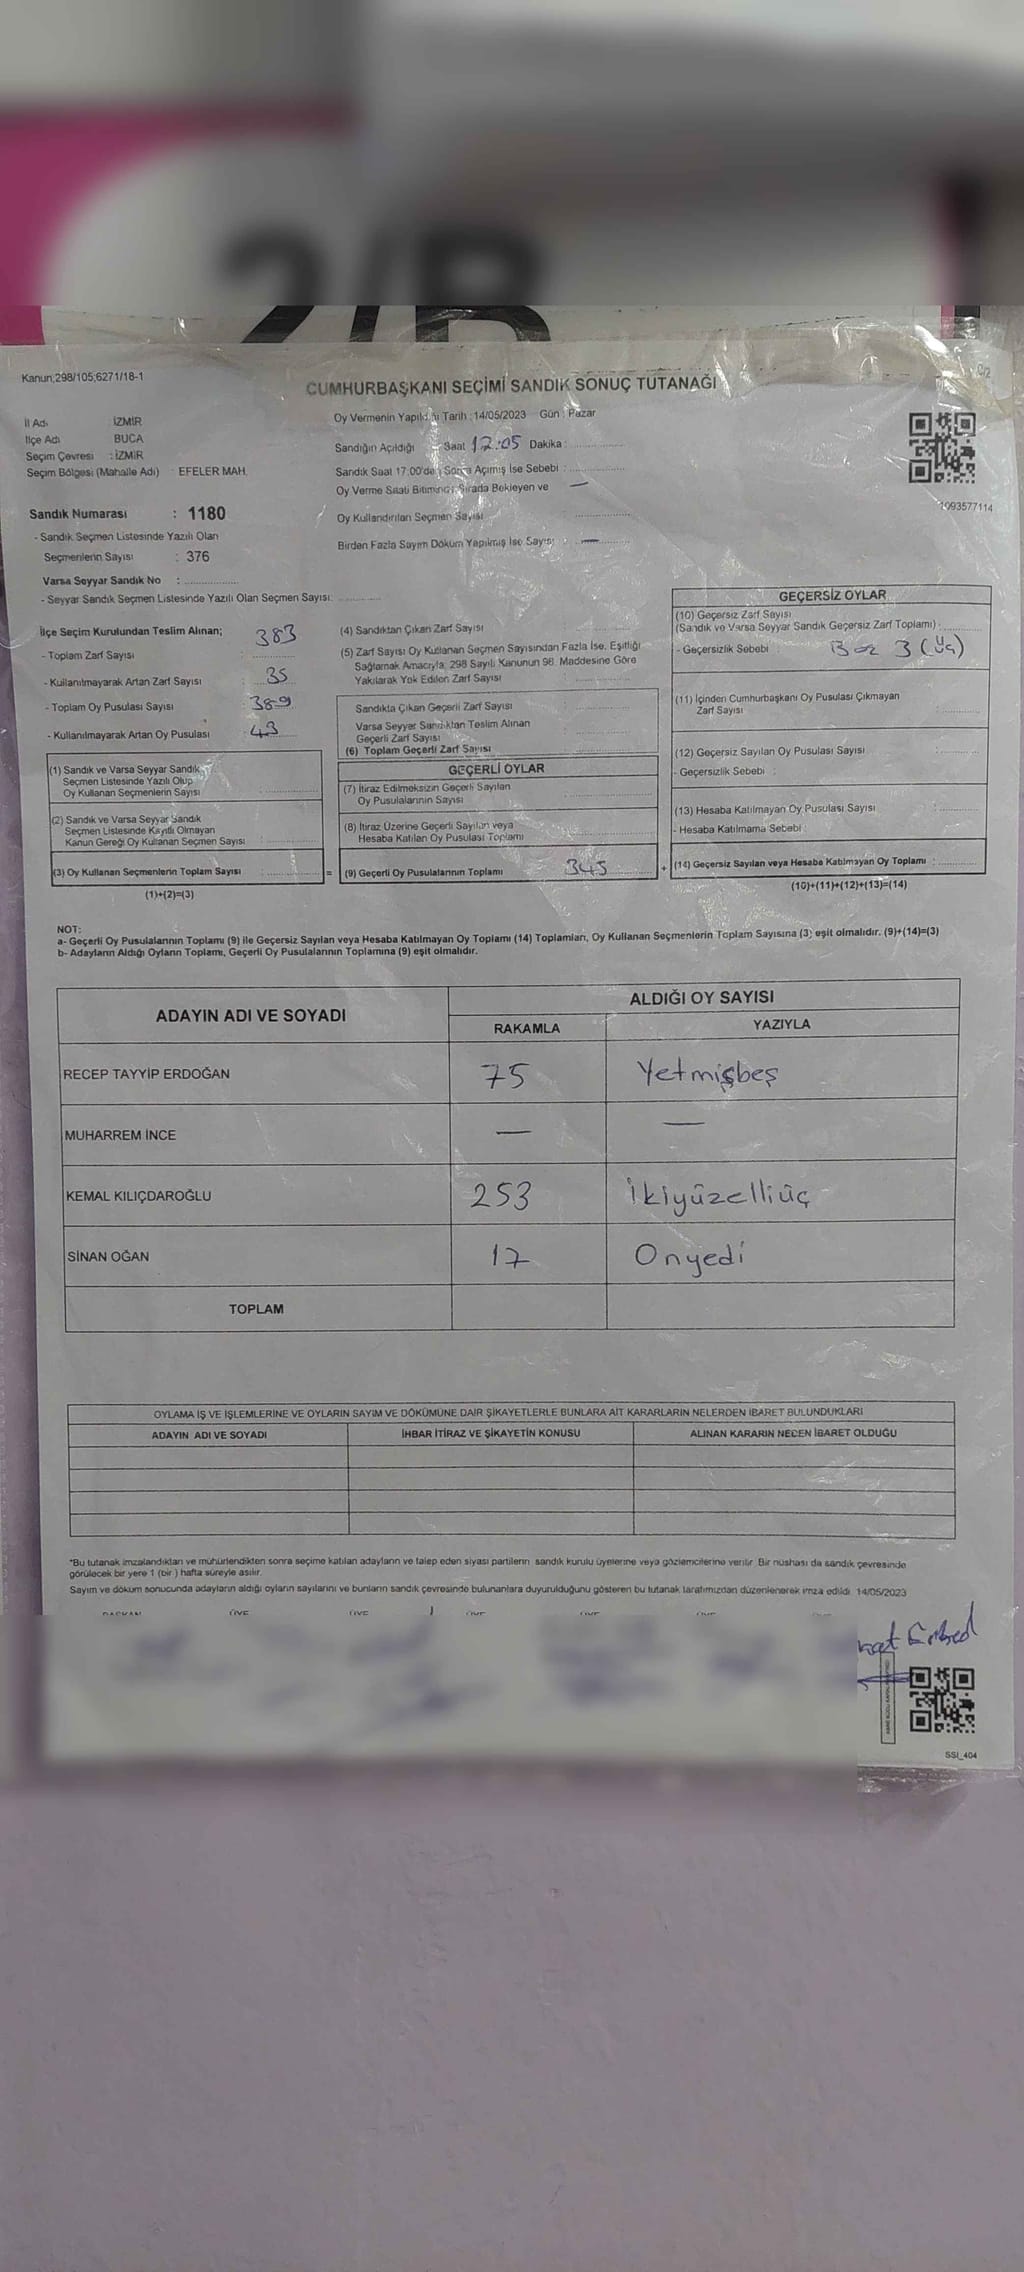 2/B
Kanun;298/105;6271/18-1
CUMHURBAŞKANI SEÇİMİ SANDIK SONUÇ TUTANAĞI
İl Adı İZMİR
İlçe Adı BUCA
Seçim Çevresi : İZMİR
Seçim Bölgesi (Mahalle Adı) : EFELER MAH.
Oy Vermenin Yapıldığı Tarih : 14/05/2023 Gün : Pazar
Sandığın Açıldığı Saat 17:05 Dakika :
Sandık Saat 17.00'den Sonra Açılmış İse Sebebi :
Oy Verme Saati Bitiminde Sırada Bekleyen ve —
Oy Kullandırılan Seçmen Sayısı
Birden Fazla Sayım Döküm Yapılmış İse Sayısı —
1093577114
Sandık Numarası : 1180
- Sandık Seçmen Listesinde Yazılı Olan
Seçmenlerin Sayısı : 376
Varsa Seyyar Sandık No :
- Seyyar Sandık Seçmen Listesinde Yazılı Olan Seçmen Sayısı:
İlçe Seçim Kurulundan Teslim Alınan;
- Toplam Zarf Sayısı 383
- Kullanılmayarak Artan Zarf Sayısı : 35
- Toplam Oy Pusulası Sayısı : 389
- Kullanılmayarak Artan Oy Pusulası : 43
(1) Sandık ve Varsa Seyyar Sandık
Seçmen Listesinde Yazılı Olup
Oy Kullanan Seçmenlerin Sayısı
(2) Sandık ve Varsa Seyyar Sandık
Seçmen Listesinde Kayıtlı Olmayan
Kanun Gereği Oy Kullanan Seçmen Sayısı
(3) Oy Kullanan Seçmenlerin Toplam Sayısı
(1)+(2)=(3)
=
(4) Sandıktan Çıkan Zarf Sayısı
(5) Zarf Sayısı Oy Kullanan Seçmen Sayısından Fazla İse, Eşitliği
Sağlamak Amacıyla, 298 Sayılı Kanunun 98. Maddesine Göre
Yakılarak Yok Edilen Zarf Sayısı
Sandıkta Çıkan Geçerli Zarf Sayısı
Varsa Seyyar Sandıktan Teslim Alınan
Geçerli Zarf Sayısı
(6) Toplam Geçerli Zarf Sayısı
GEÇERLİ OYLAR
(7) İtiraz Edilmeksizin Geçerli Sayılan
Oy Pusulalarının Sayısı
(8) İtiraz Üzerine Geçerli Sayılan veya
Hesaba Katılan Oy Pusulası Toplamı
(9) Geçerli Oy Pusulalarının Toplamı 345
+
GEÇERSİZ OYLAR
(10) Geçersiz Zarf Sayısı
(Sandık ve Varsa Seyyar Sandık Geçersiz Zarf Toplamı) :
- Geçersizlik Sebebi : Boz 3 (Üç)
(11) İçinden Cumhurbaşkanı Oy Pusulası Çıkmayan
Zarf Sayısı
(12) Geçersiz Sayılan Oy Pusulası Sayısı
- Geçersizlik Sebebi :
(13) Hesaba Katılmayan Oy Pusulası Sayısı
- Hesaba Katılmama Sebebi :
(14) Geçersiz Sayılan veya Hesaba Katılmayan Oy Toplamı :
(10)+(11)+(12)+(13)=(14)
NOT:
a- Geçerli Oy Pusulalarının Toplamı (9) ile Geçersiz Sayılan veya Hesaba Katılmayan Oy Toplamı (14) Toplamları, Oy Kullanan Seçmenlerin Toplam Sayısına (3) eşit olmalıdır. (9)+(14)=(3)
b- Adayların Aldığı Oyların Toplamı, Geçerli Oy Pusulalarının Toplamına (9) eşit olmalıdır.
ADAYIN ADI VE SOYADI
ALDIĞI OY SAYISI
RAKAMLA YAZIYLA
RECEP TAYYİP ERDOĞAN 75 Yetmişbeş
MUHARREM İNCE — —
KEMAL KILIÇDAROĞLU 253 İkiyüzelliüç
SİNAN OĞAN 17 Onyedi
TOPLAM
OYLAMA İŞ VE İŞLEMLERİNE VE OYLARIN SAYIM VE DÖKÜMÜNE DAİR ŞİKAYETLERLE BUNLARA AİT KARARLARIN NELERDEN İBARET BULUNDUKLARI
ADAYIN ADI VE SOYADI İHBAR İTİRAZ VE ŞİKAYETİN KONUSU ALINAN KARARIN NEDEN İBARET OLDUĞU
*Bu tutanak imzalandıktan ve mühürlendikten sonra seçime katılan adayların ve talep eden siyasi partilerin sandık kurulu üyelerine veya gözlemcilerine verilir. Bir nüshası da sandık çevresinde
görülecek bir yere 1 (bir ) hafta süreyle asılır.
Sayım ve döküm sonucunda adayların aldığı oyların sayılarını ve bunların sandık çevresinde bulunanlara duyurulduğunu gösteren bu tutanak tarafımızdan düzenlenerek imza edildi. 14/05/2023
BAŞKAN ÜYE ÜYE ÜYE ÜYE ÜYE ÜYE
SSİ_404